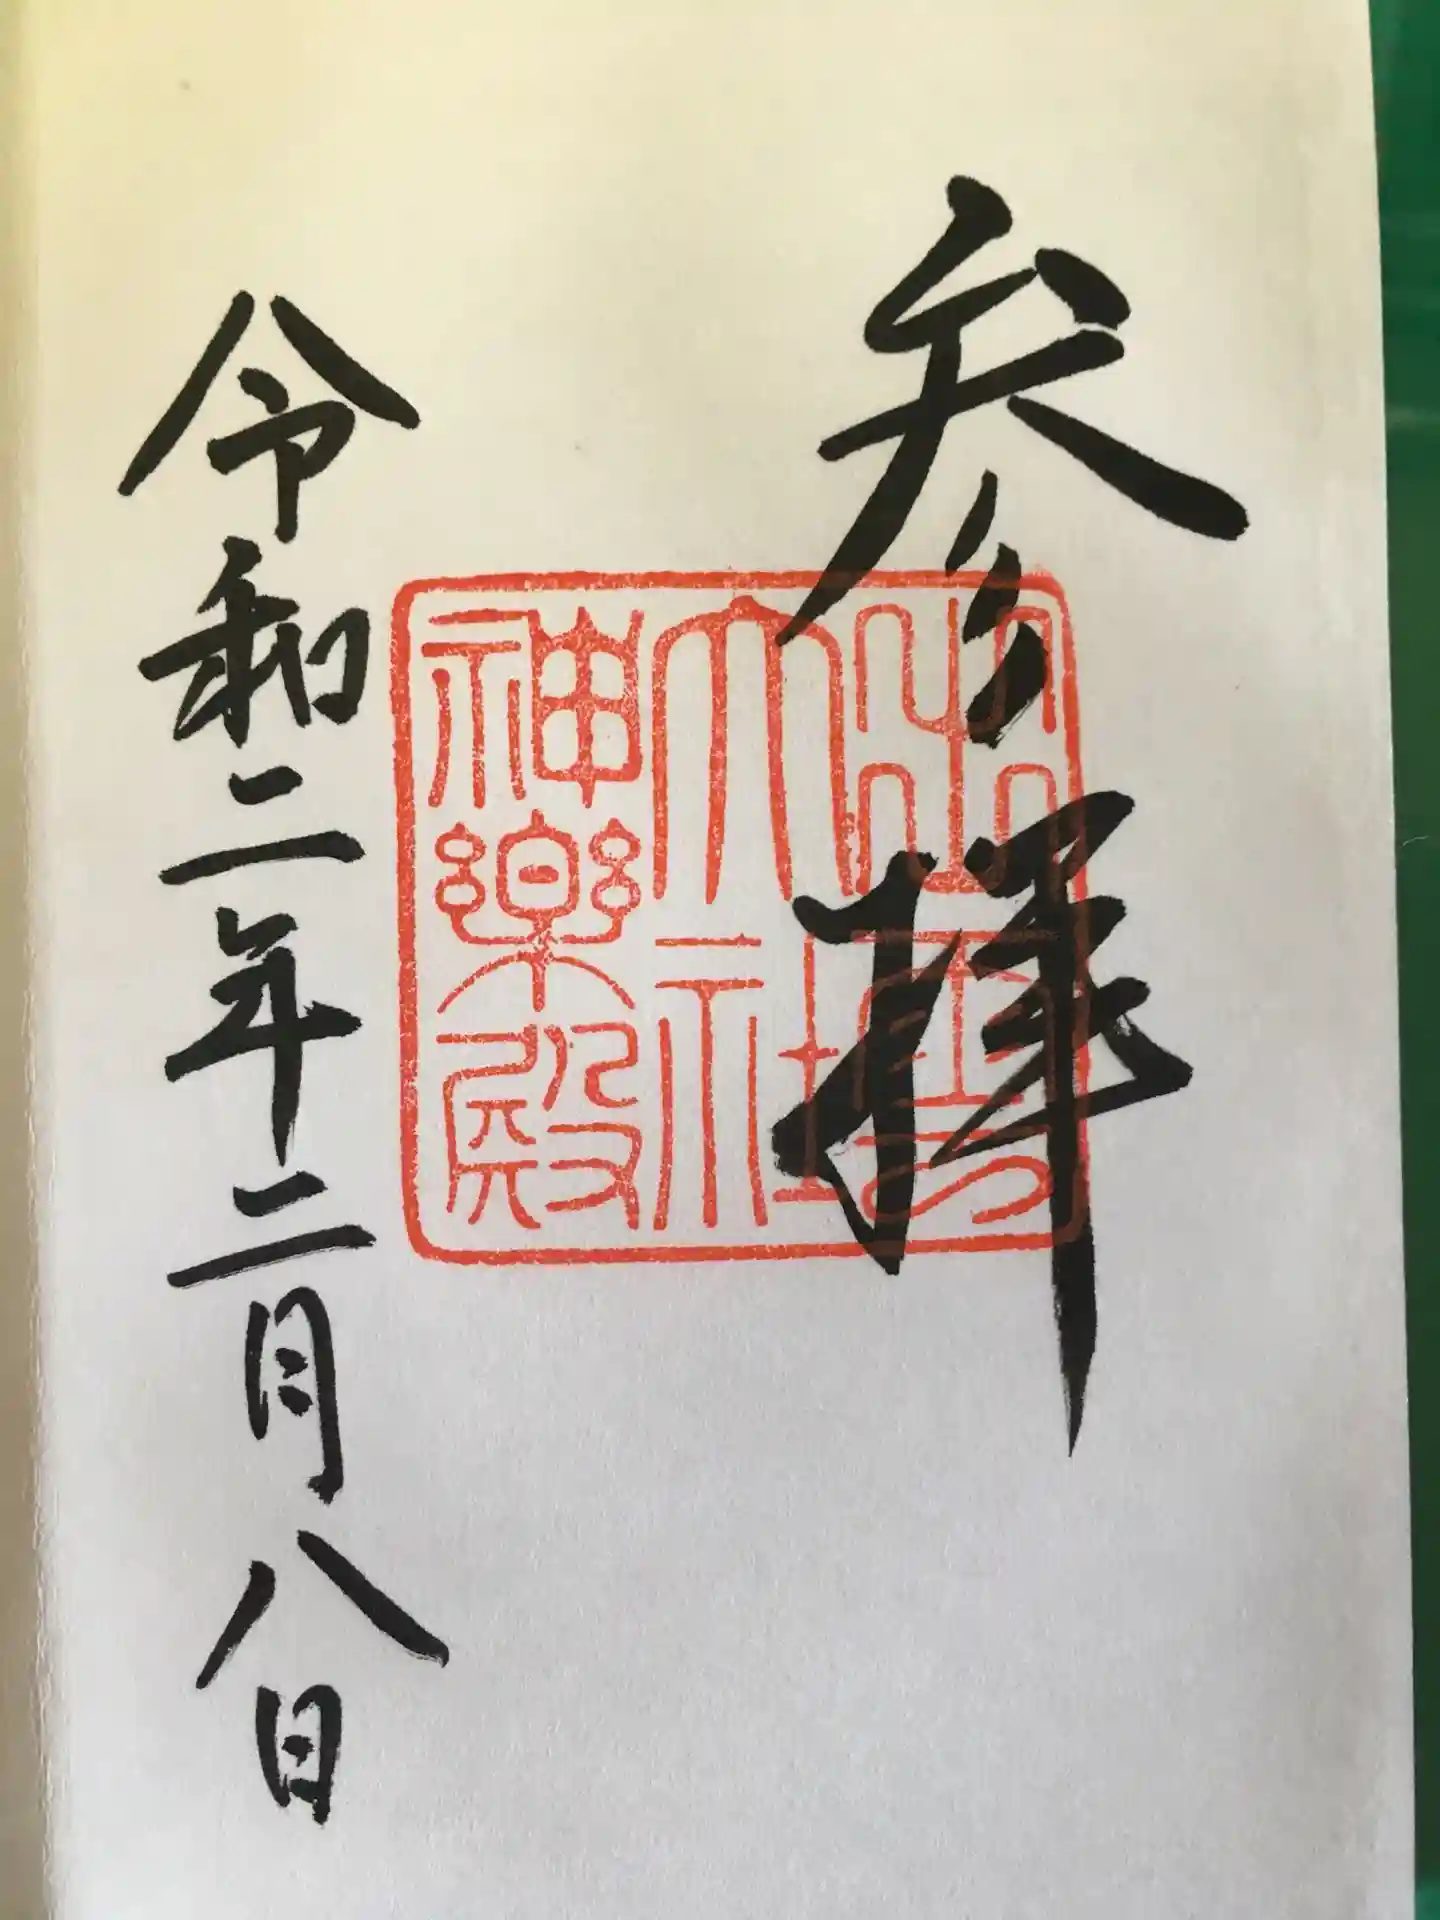 参拝
出雲
大社
神楽殿
令和二年二月八日